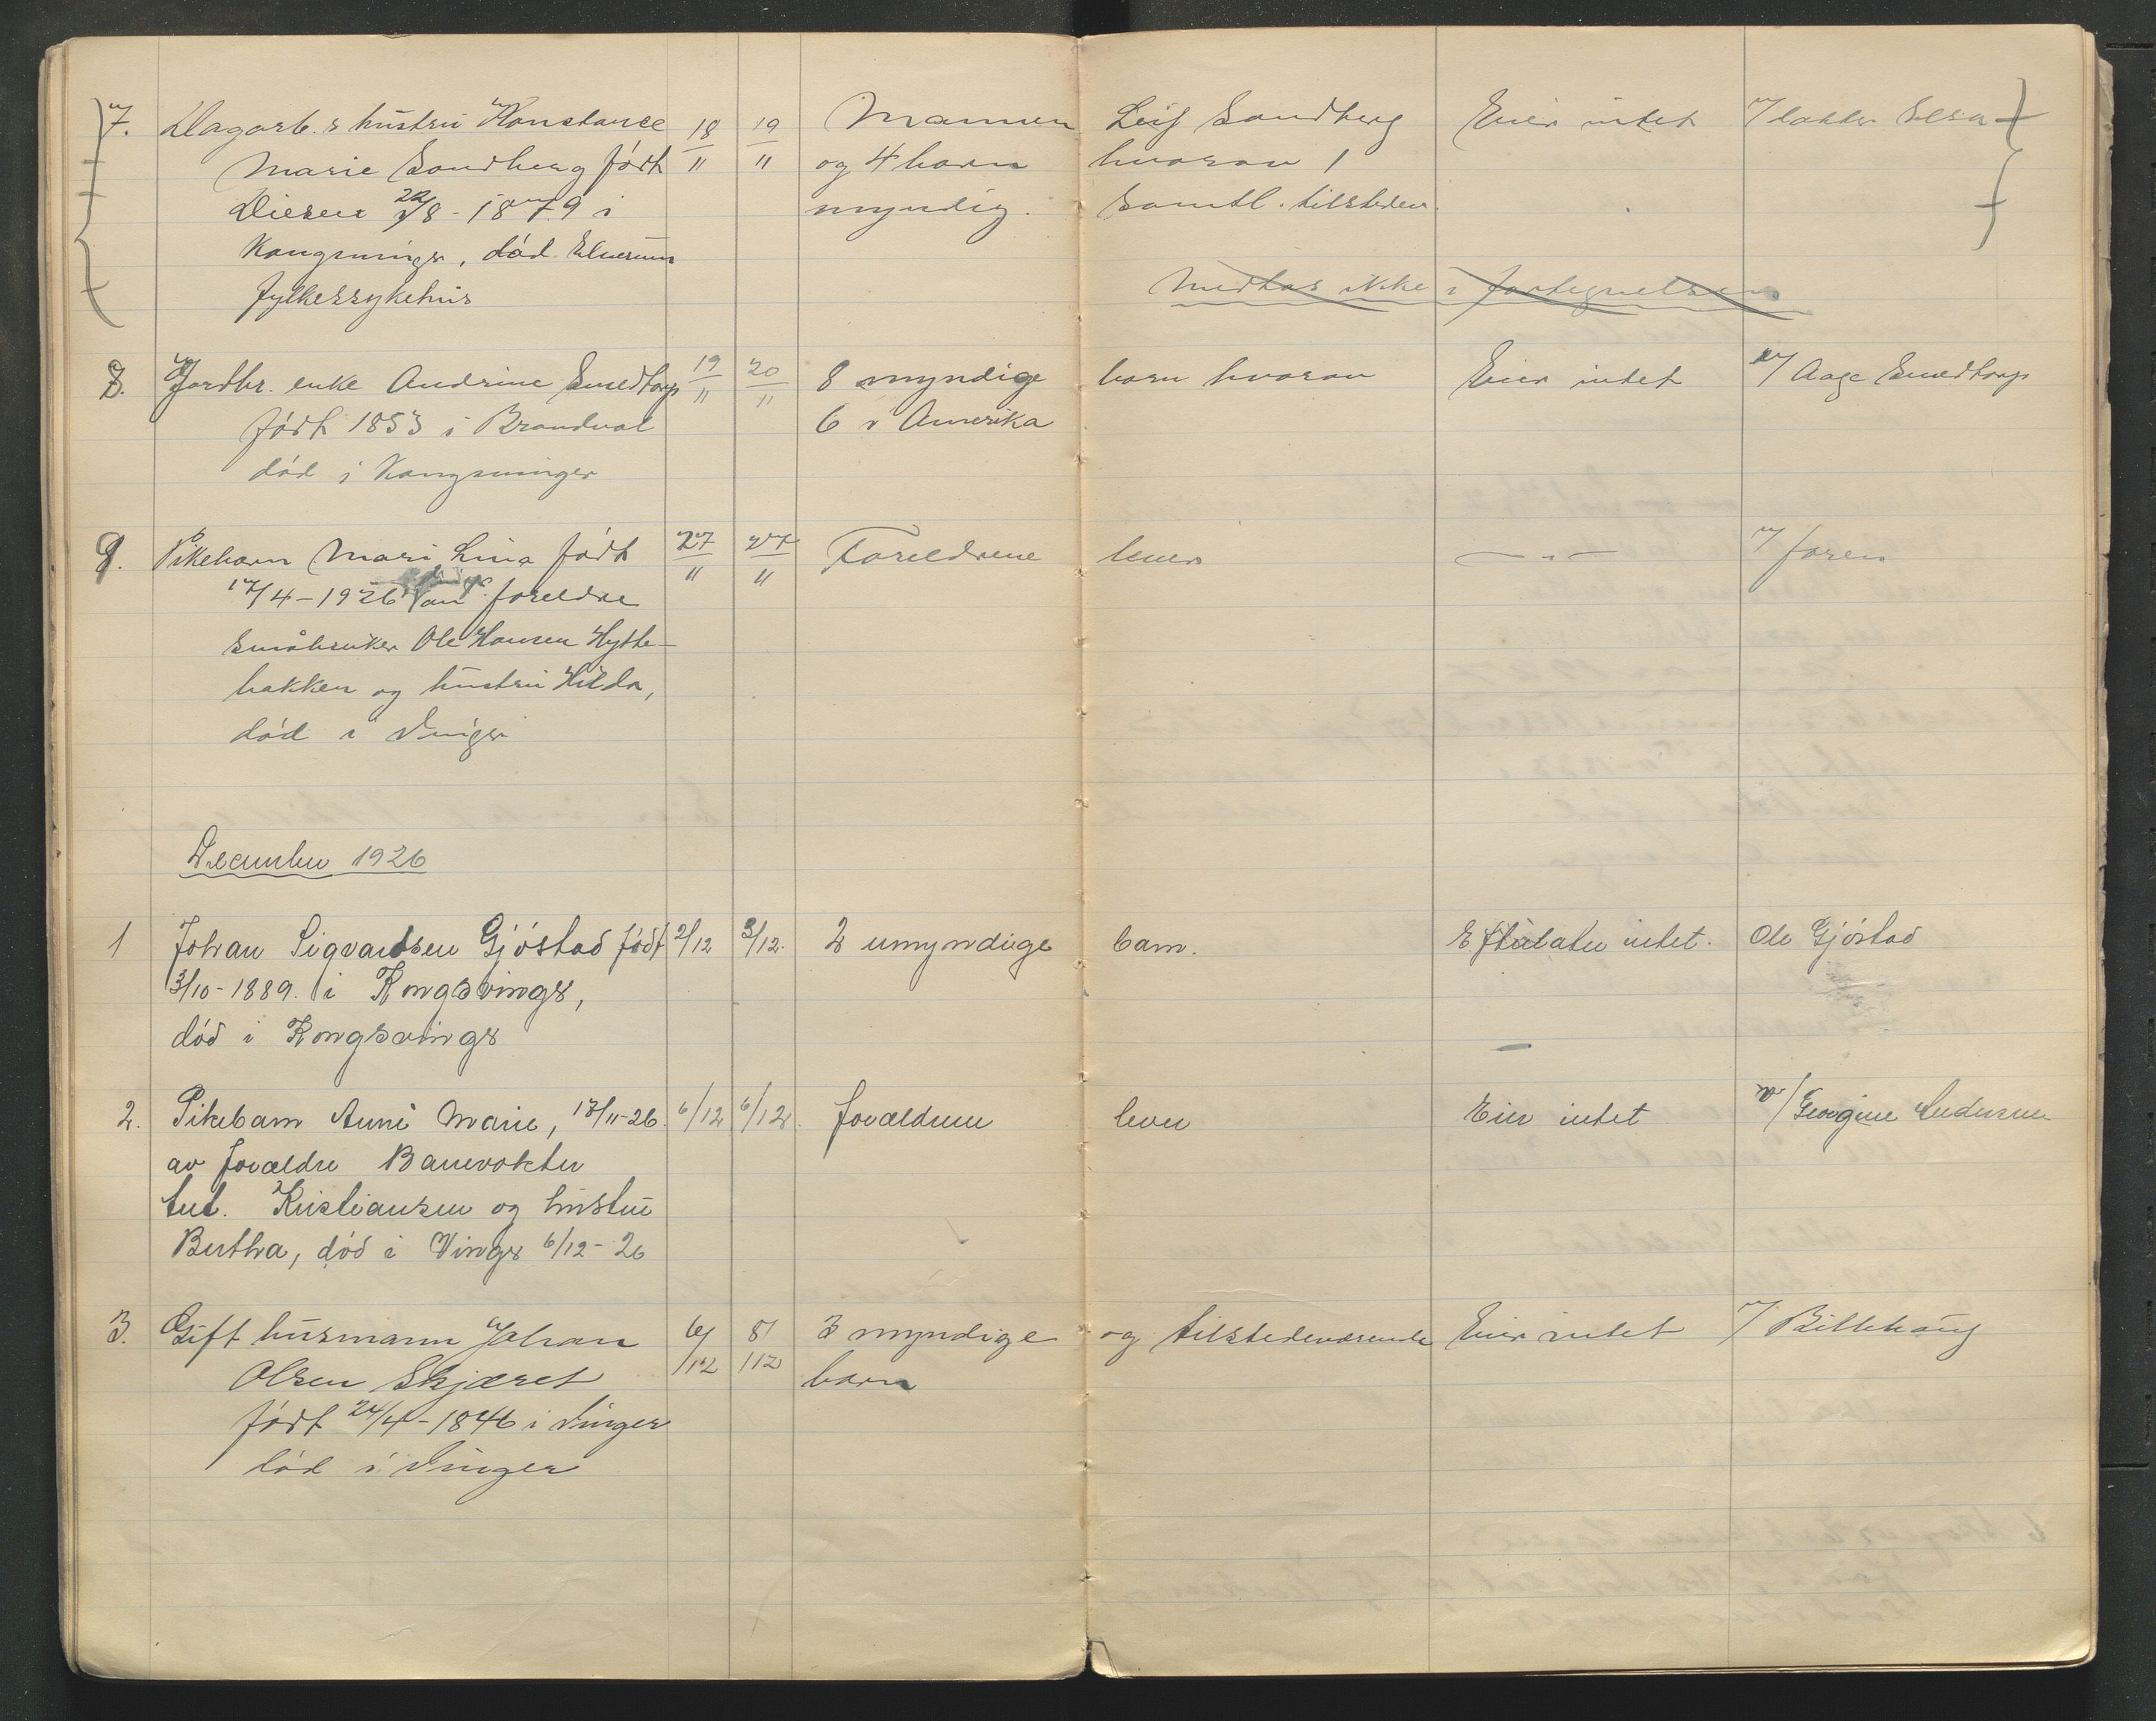 7. Dagarb.s hustru Konstance 18/11 19/11 Mannen Leif Sandberg Eier intet v/ datter Elsa
Marie Sandberg født og 4 barn hvorav 1
Diesen 22/8-1879 i myndig. samtl. tilstede.
Kongsvinger, død Elverum
fylkessykehus
Medtas ikke i fortegnelsen
8. Jordbr. enke Andrine Smedtorp 19/11 20/11 8 myndige barn hvorav Eier intet v/ Aage Smedtorp
født 1853 i Brandval 6 i Amerika
død i Kongsvinger
9. Pikebarn Mari Lina født 27/11 27/11 Foreldrene lever — " — v/ faren
17/4-1926 av foreldre
småbruker Ole Hansen Hytte-
bakken og hustru Hilda,
død i Vinger
December 1926
1 Johan Sigvardsen Gjøstad født 2/12 3/12. 2 umyndige barn. Efterlater intet. Ole Gjøstad
3/10-1889. i Kongsvinger,
død i Kongsvinger
2. Pikebarn Anne Marie, 13/11-26. 6/12 6/12. forældrene lever Eier intet v/ Georgine Andersen
av forældre Banevokter
Kristiansen og hustru
Bertha, død i Vinger 6/12-26
3. Gift husmann Johan 6/12 8/12 3 myndige og tilstedeværende Eier intet v/ Billehaug
Olsen Skjæret barn
født 24/4-1846 i Vinger
død i Vinger